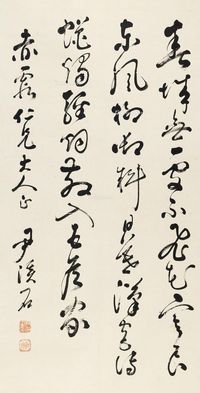 春城無處不飛花寒食
東風御柳斜日暮漢宮傳
蠟燭輕烟散入五侯家
赤霞仁兄大人正 尹溪石